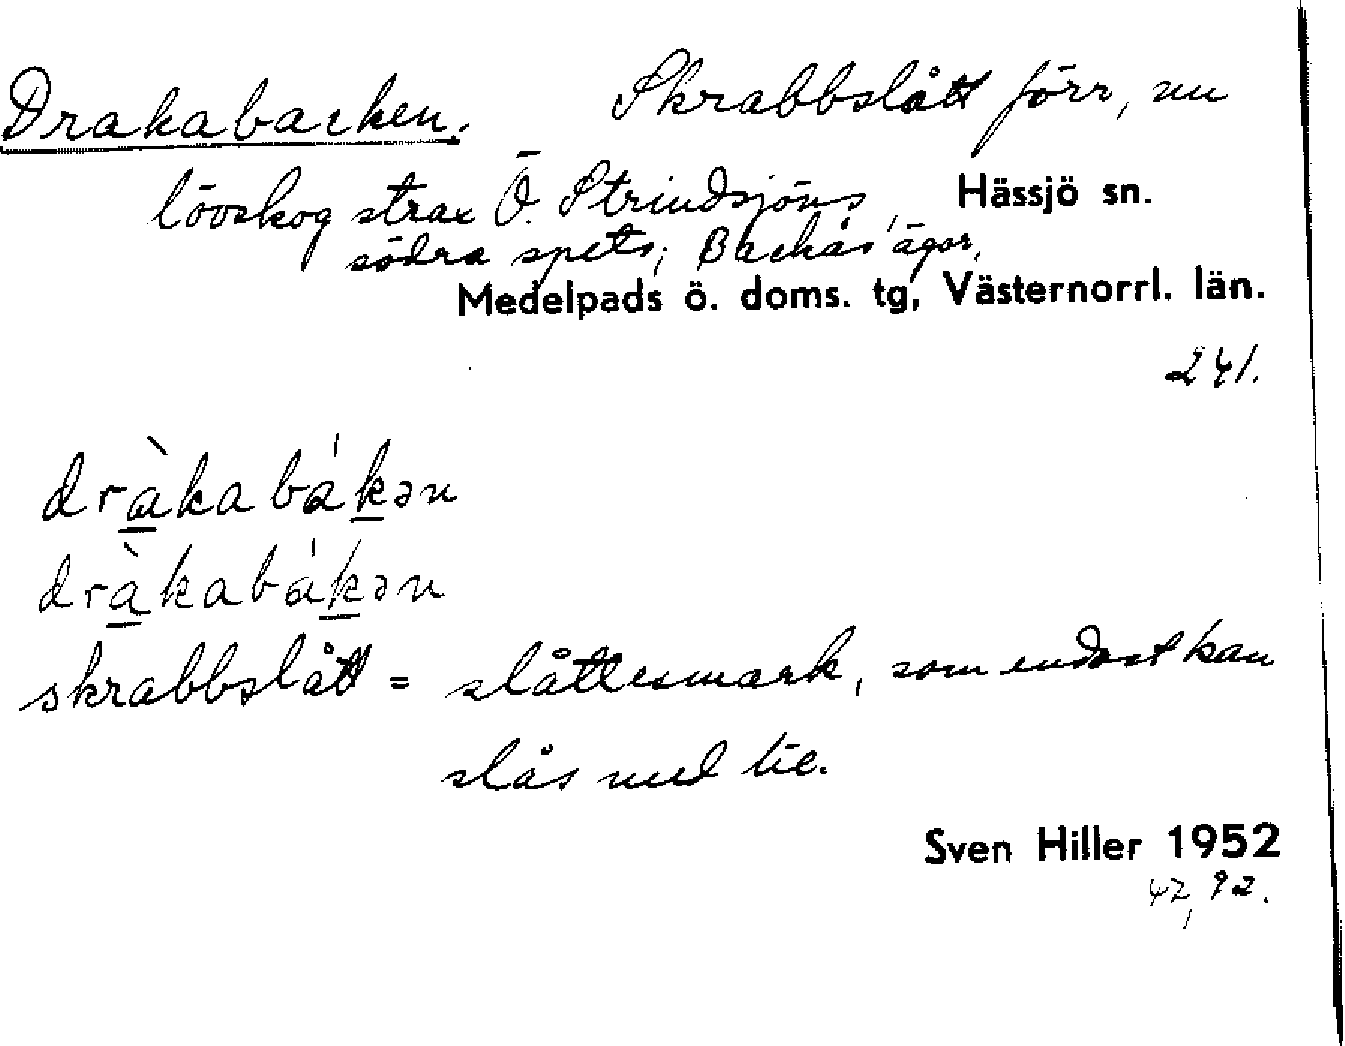 Drakabacken. Skrabbslått förr, nu
lövskog strax Ö. Strindsjöns, Hässjö sn.
södra spets; Backås' ägor,
Medelpads ö. doms. tg, Västernorrl. län.
241.
dràkabákən
dràkabákən
skrabbslått = slåttesmark, som endast kan
slås med lie.
Sven Hiller 1952
42, 92.